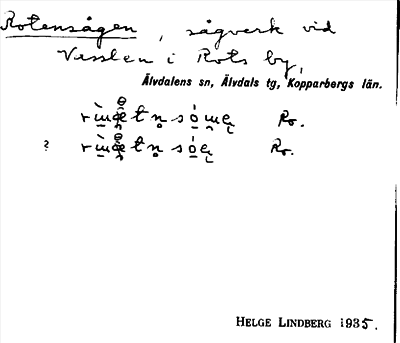 Rotensågen, sågverk vid
Vesslen i Rots by,
Älvdalens sn, Älvdals tg, Kopparbergs län.
Ro.
? Ro.
HELGE LINDBERG 1935.